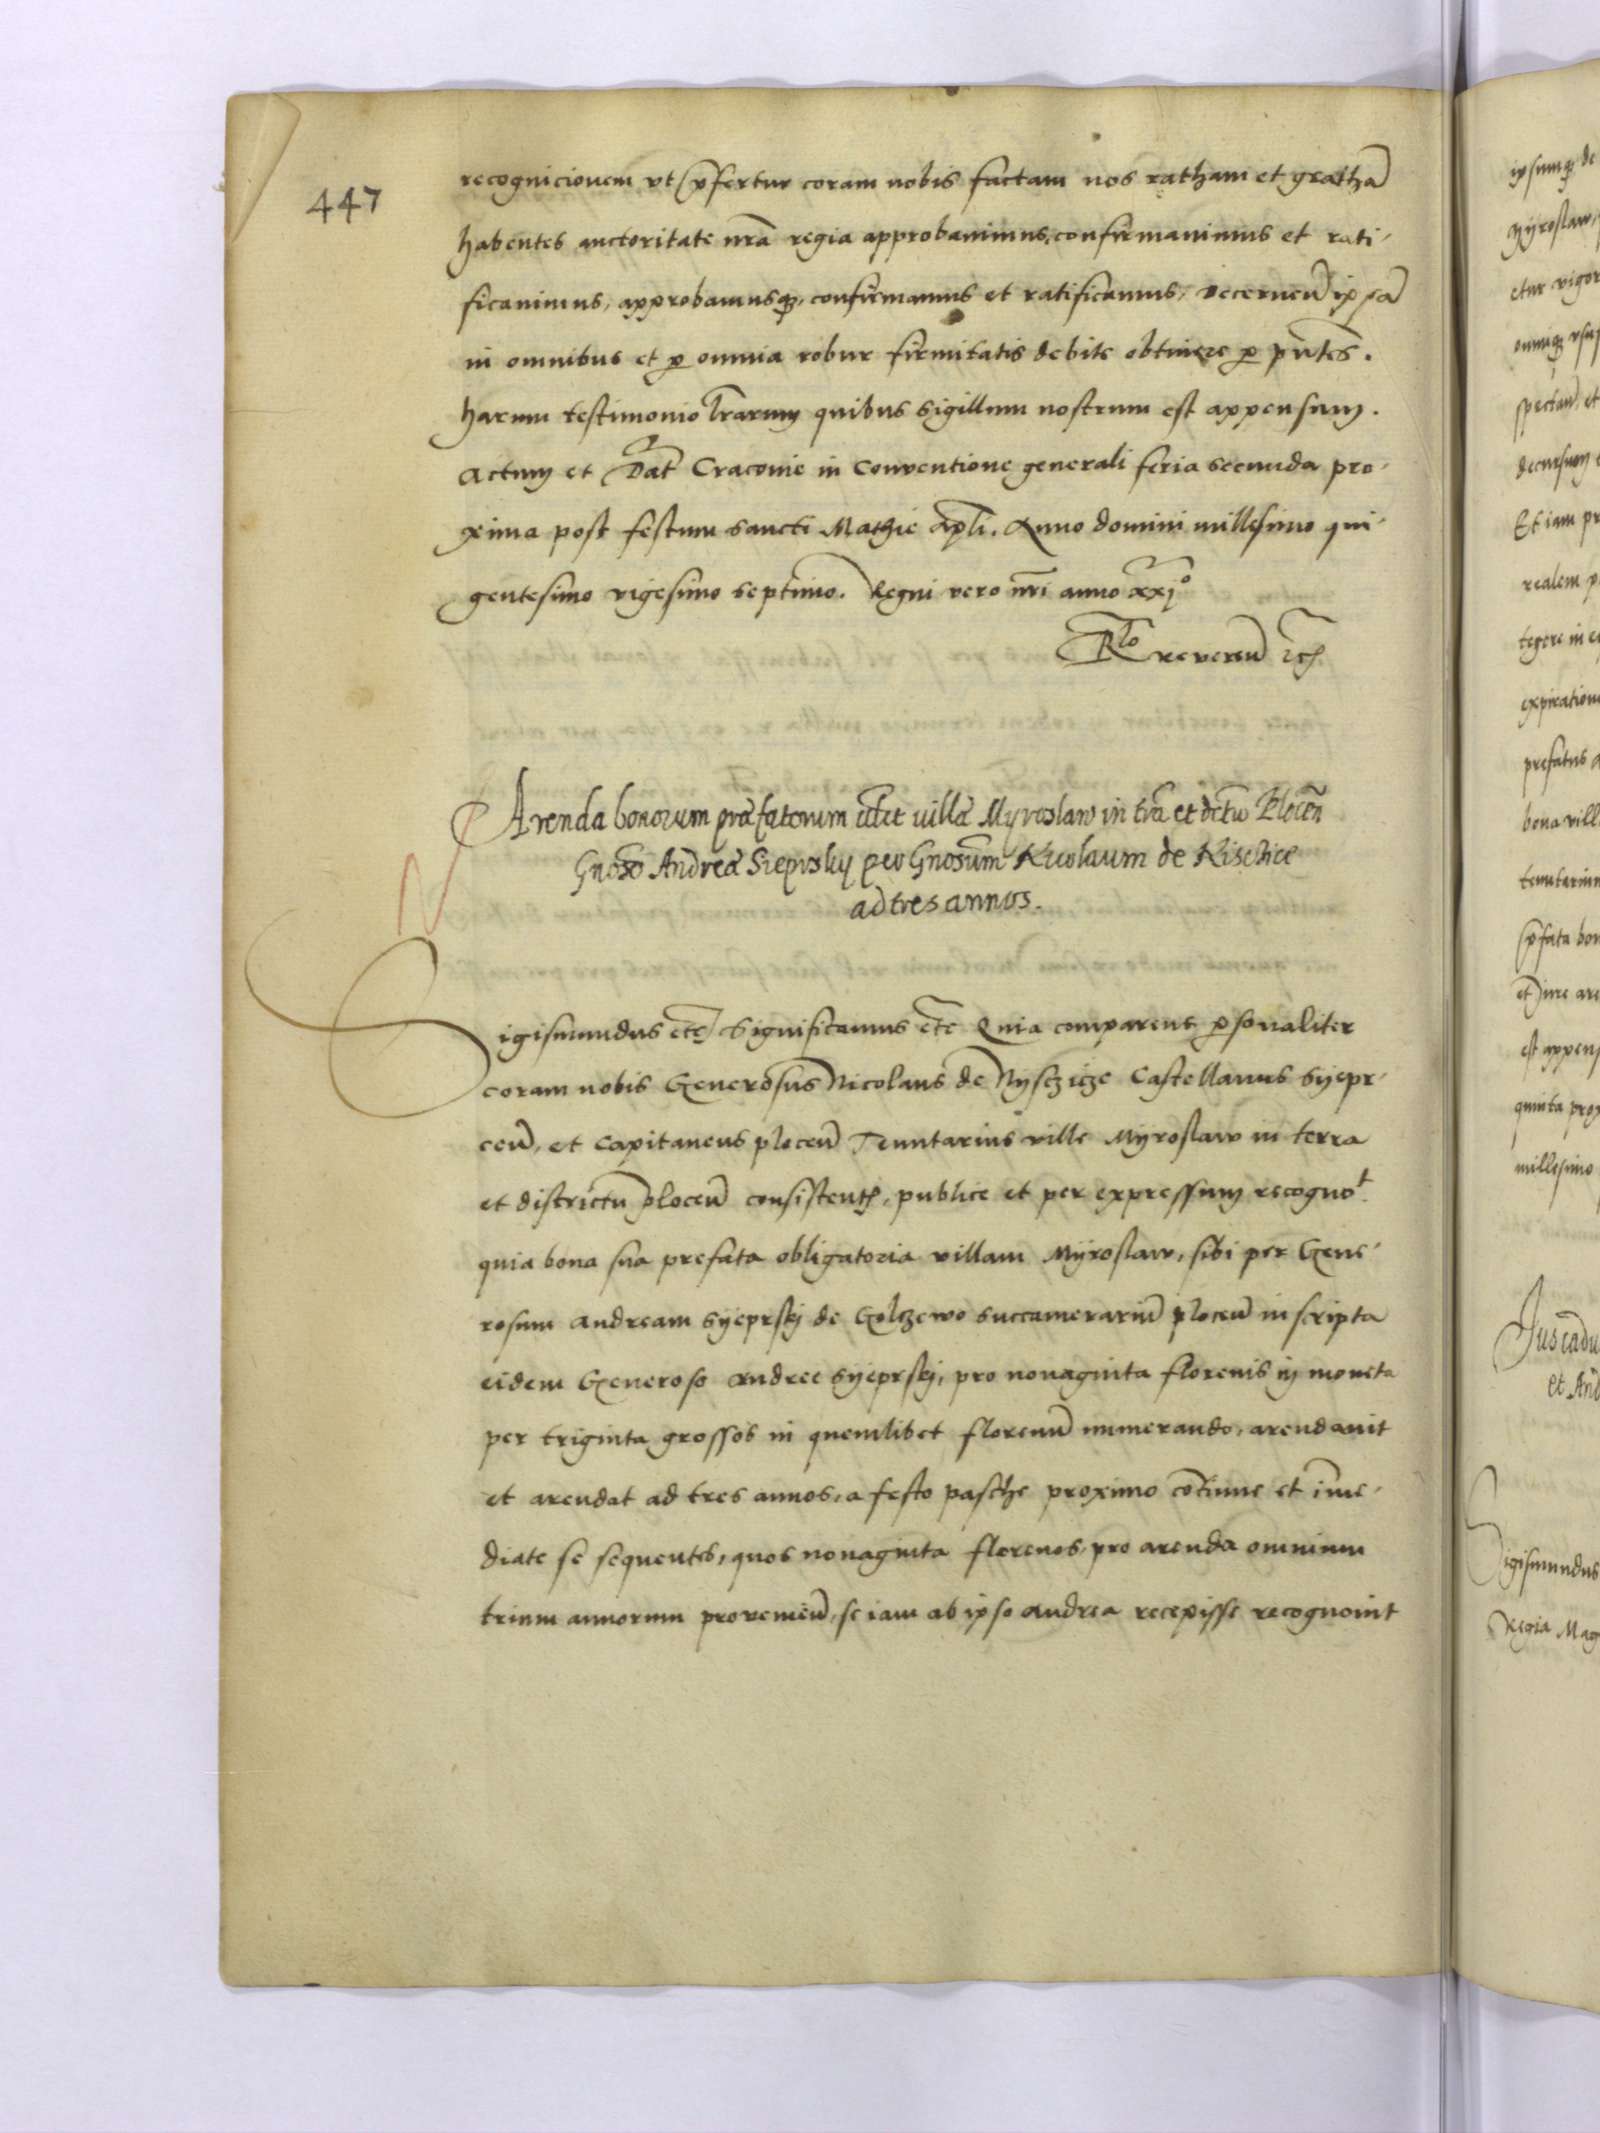 447
recognicionem vt p̄fertur coram nobis factam nos ratham et grathā
habentes auctoritate nrā regia approbavimus, confirmavimus et rati-
ficavimus, approbamusq̢, confirmamus et ratificamus, decerneñ ipsā
in omnibus et p omnia robur firmitatis debite obtinere p pñtes.
harum testimonio lrarum quibus sigillum nostrum est appensum.
Actum et Dat̄ Cracovie in Conventione generali feria secunda pro-
xima post festum sancti Mathie Apli. Anno domini millesimo qui-
gentesimo vigesimo septimo. Regni vero nr̄i anno xxjº
Rlo reveren̄ etc̄
Arenda bonorum præfatorum vdlct villæ Myroslaw in tr̄a et dctu Plocen̄
Gnoso Andreæ Sieprsky per Gnosum Nicolaum de Niscice
ad tres annos.
Sigismundus etc̄ Significamus etc̄ Quia comparens p̱sonaliter
coram nobis Generosus Nicolaus de Nysczicze Castellanus Syepr-
ceñ, et Capitaneus ploceñ Tenutarius ville Myroslaw in terra
et districtu ploceñ consisteñ, publice et per expressum recognot
quia bona sua prefata obligatoria villam Myroslaw, sibi per Gene-
rosum Andream Syeprskj de Golczewo succamerariū ploceñ inscripta
eidem Generoso Andree Syeprskj, pro nonaginta florenis in moneta
per triginta grossos in quemlibet florenū numerando, arendavit
et arendat ad tres annos, a festo pasche proximo cōtinue et im̄e-
diate se sequentes, quos nonaginta florenos, pro arenda omnium
trium annorum provenieñ, se iam ab ipso Andrea recepisse recognovit
ipsumq̢ de
Myroslaw,
etur vigor
omniq̢ usu
spectañ et
decursum
Et iam pr
realem p
tegere in e
expiration
prefatus A
bona vill
tenutarium
p̄fata bon
et iure are
est appens
quinta prox
millesimo
Jus cadu
et And
Sigismundus
Regia Mag